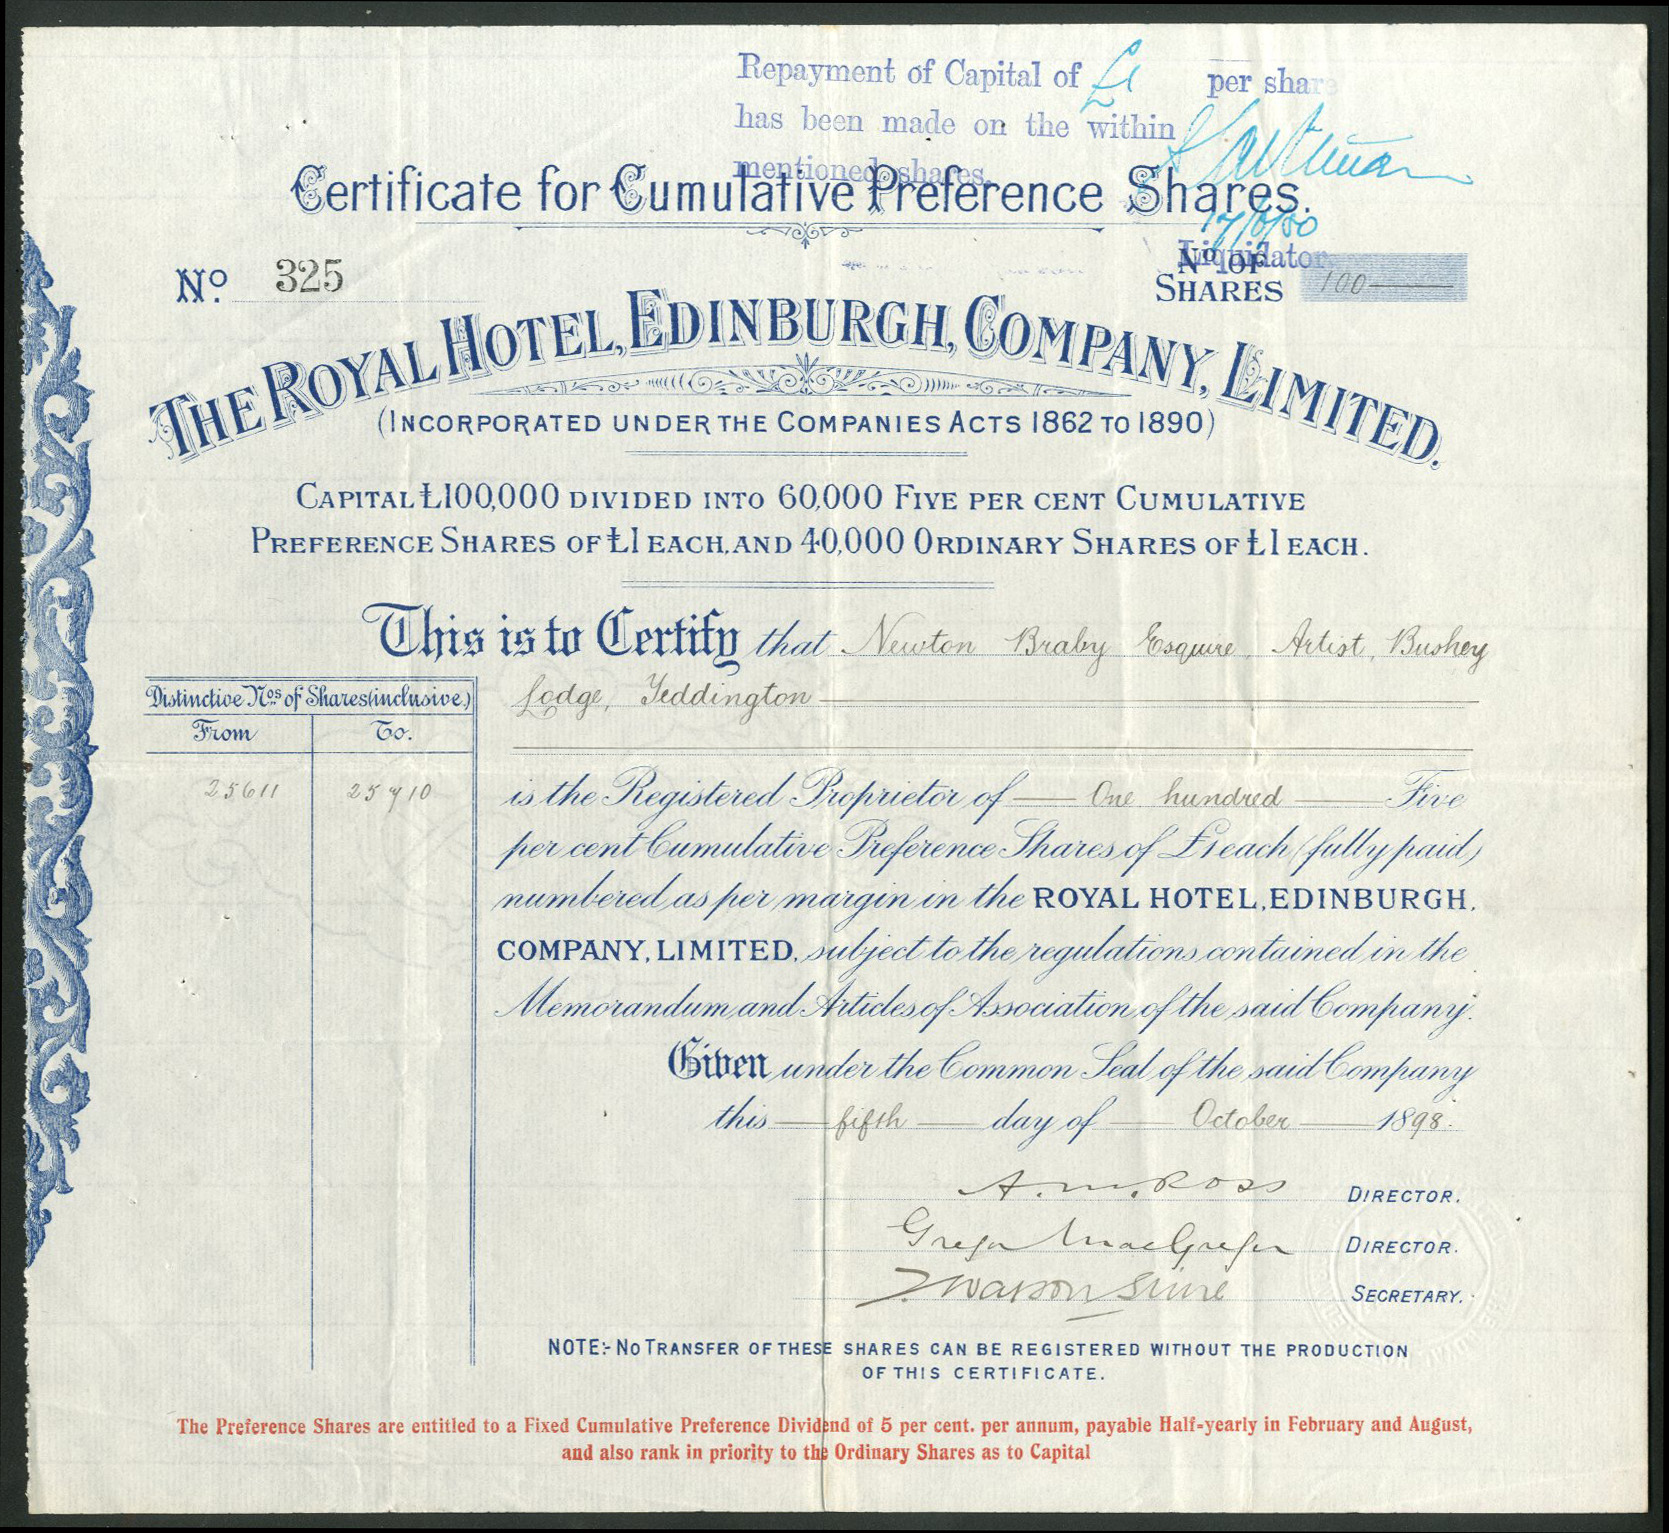 Repayment of Capital of £1 per share
has been made on the within
mentioned shares.
Certificate for Cumulative Preference Shares.
17/6/50
Liquidator.
No. 325
No. OF
SHARES 100
THE ROYAL HOTEL, EDINBURGH, COMPANY, LIMITED.
(INCORPORATED UNDER THE COMPANIES ACTS 1862 TO 1890)
CAPITAL £100,000 DIVIDED INTO 60,000 FIVE PER CENT CUMULATIVE
PREFERENCE SHARES OF £1 EACH, AND 40,000 ORDINARY SHARES OF £1 EACH.
This is to Certify that Newton Braby Esquire, Artist, Bushey
Lodge, Teddington
Distinctive Nos. of Shares (inclusive)
From To.
25611 25710
is the Registered Proprietor of One hundred Five
per cent Cumulative Preference Shares of £1 each (fully paid)
numbered as per margin in the ROYAL HOTEL, EDINBURGH,
COMPANY, LIMITED, subject to the regulations contained in the
Memorandum and Articles of Association of the said Company.
Given under the Common Seal of the said Company
this fifth day of October 1898.
A. M. Ross DIRECTOR.
Gregor MacGregor DIRECTOR.
SECRETARY.
NOTE:- NO TRANSFER OF THESE SHARES CAN BE REGISTERED WITHOUT THE PRODUCTION
OF THIS CERTIFICATE.
The Preference Shares are entitled to a Fixed Cumulative Preference Dividend of 5 per cent. per annum, payable Half-yearly in February and August,
and also rank in priority to the Ordinary Shares as to Capital